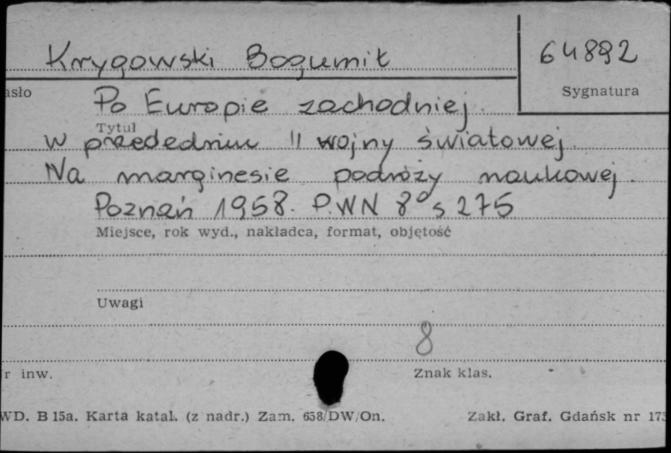 Krygowski Bogumił
64892
asło
Sygnatura
Po Europie zachodniej.
Tytuł
w przededniu II wojny światowej.
Na marginesie podróży naukowej.
Poznań 1958. P.WN 8° s 275
Miejsce, rok wyd., nakładca, format, objętość
Uwagi
8
r inw.
Znak klas.
WD. B 15a. Karta katal. (z nadr.) Zam. 658/DW/On.
Zakł. Graf. Gdańsk nr 173